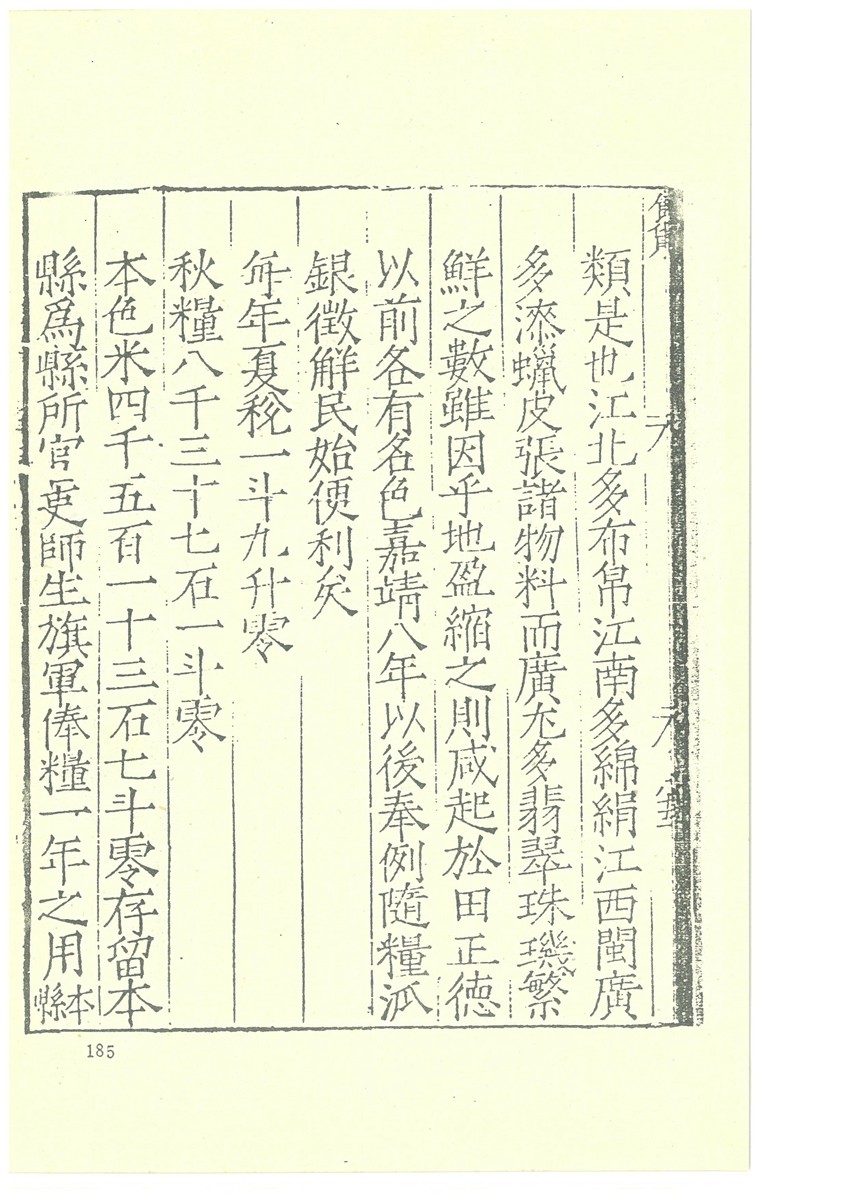 類是也江北多布帛江南多綿絹江西閩廣
多漆蠟皮張諸物料而廣尤多翡翠珠璣繁
鮮之數雖因乎地盈縮之則咸起於田正德
以前各有名色嘉靖八年以後奉例隨糧派
銀徵解民始便利矣
每年夏稅一斗九升零
秋糧八千三十七石一斗零
本色米四千五百一十三石七斗零存留本
縣爲縣所官吏師生旗軍俸糧一年之用本縣
185